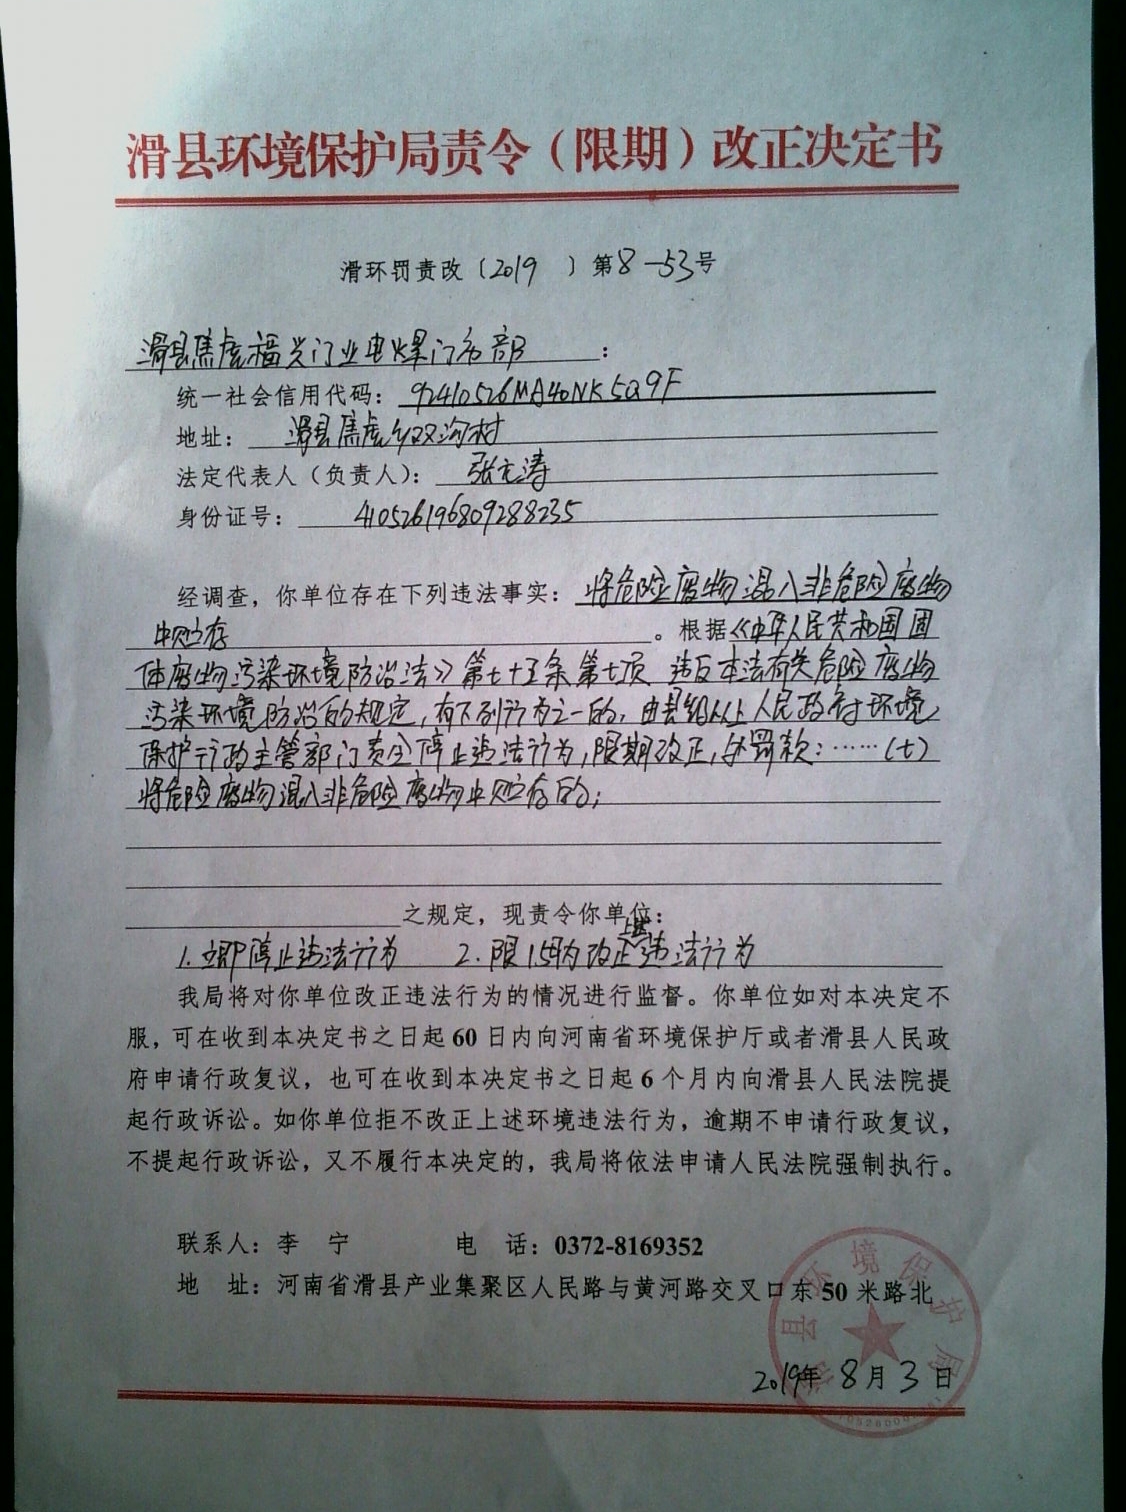 滑县环境保护局责令（限期）改正决定书
滑环罚责改〔2019 〕第8-53号
滑县焦虎福兴门业电焊门市部：
统一社会信用代码：92410526MA40NK5Q9F
地址：滑县焦虎乡双沟村
法定代表人（负责人）：张元涛
身份证号：410526196809288235
经调查，你单位存在下列违法事实：将危险废物混入非危险废物
中贮存。根据《中华人民共和国固
体废物污染环境防治法》第七十五条第七项 违反本法有关危险废物
污染环境防治的规定，有下列行为之一的，由县级以上人民政府环境
保护行政主管部门责令停止违法行为，限期改正，处罚款：……（七）
将危险废物混入非危险废物中贮存的；
之规定，现责令你单位：
1.立即停止违法行为 2.限15日内改正上述违法行为
我局将对你单位改正违法行为的情况进行监督。你单位如对本决定不
服，可在收到本决定书之日起60日内向河南省环境保护厅或者滑县人民政
府申请行政复议，也可在收到本决定书之日起6个月内向滑县人民法院提
起行政诉讼。如你单位拒不改正上述环境违法行为，逾期不申请行政复议，
不提起行政诉讼，又不履行本决定的，我局将依法申请人民法院强制执行。
联系人：李 宁 电 话：0372-8169352
地 址：河南省滑县产业集聚区人民路与黄河路交叉口东50米路北
滑县环境保护局
2019年8月3日